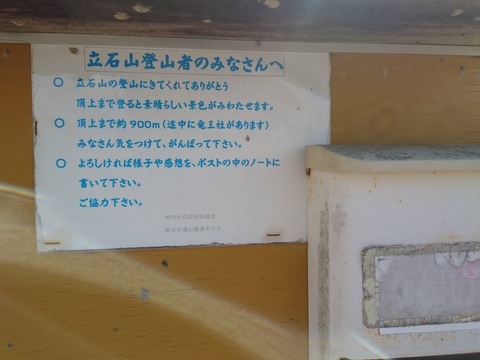 立石山登山者のみなさんへ
○ 立石山の登山にきてくれてありがとう
頂上まで登ると素晴らしい景色がみわたせます。
○ 頂上まで約900m(途中に竜王社があります)
みなさん気をつけて、がんばって下さい。
○ よろしければ様子や感想を、ポストの中のノートに
書いて下さい。
ご協力下さい。